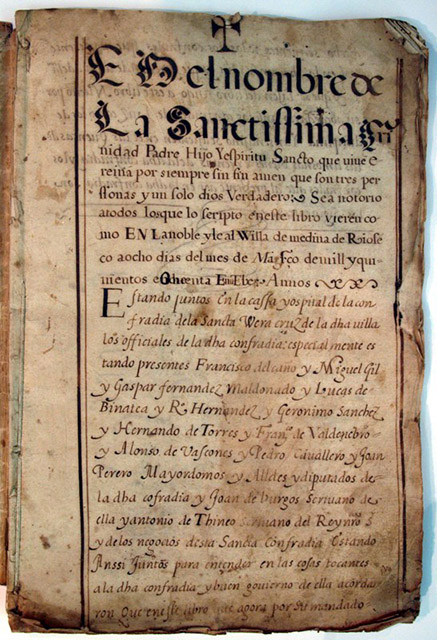 EN el nombre de
La Sanctissima tri
nidad Padre Hijo Yespiritu Sancto que viue e
reina por siempre sin fin amen que son tres per
ssonas y un solo dios Verdadero Sea notorio
atodos los que lo scripto eneste libro vieren co
mo EN La noble y leal Villa de medina de Riose
co a ocho dias del mes de Março de mill y qui
nientos e Ochenta Años
Estando juntos en la cassa y ospital de la con
fradia de la Sancta Vera cruz de la dha villa
los officiales de la dha confradia especialmente es
tando presentes Francisco del cano y Miguel Gil
y Gaspar fernandez maldonado y Lucas de
Binatea y Rº Hernandez y Geronimo Sanchez
y Hernando de Torres y Franº de Valdenebro
y Alonso de Vascones y Pedro Cauallero y Joan
Perero Mayordomos y Alldes y diputados de
la dha cofradia y Joan de burgos Scriuano de
ella y antonio de Thineo Scriuano del Reyno
y de los negocios desta Sancta Confradia Estando
Anssi Juntos para entender en las cosas tocantes
a la dha confradia y buen gouierno de ella acorda
ron Que eneste libro que agora por su mandado